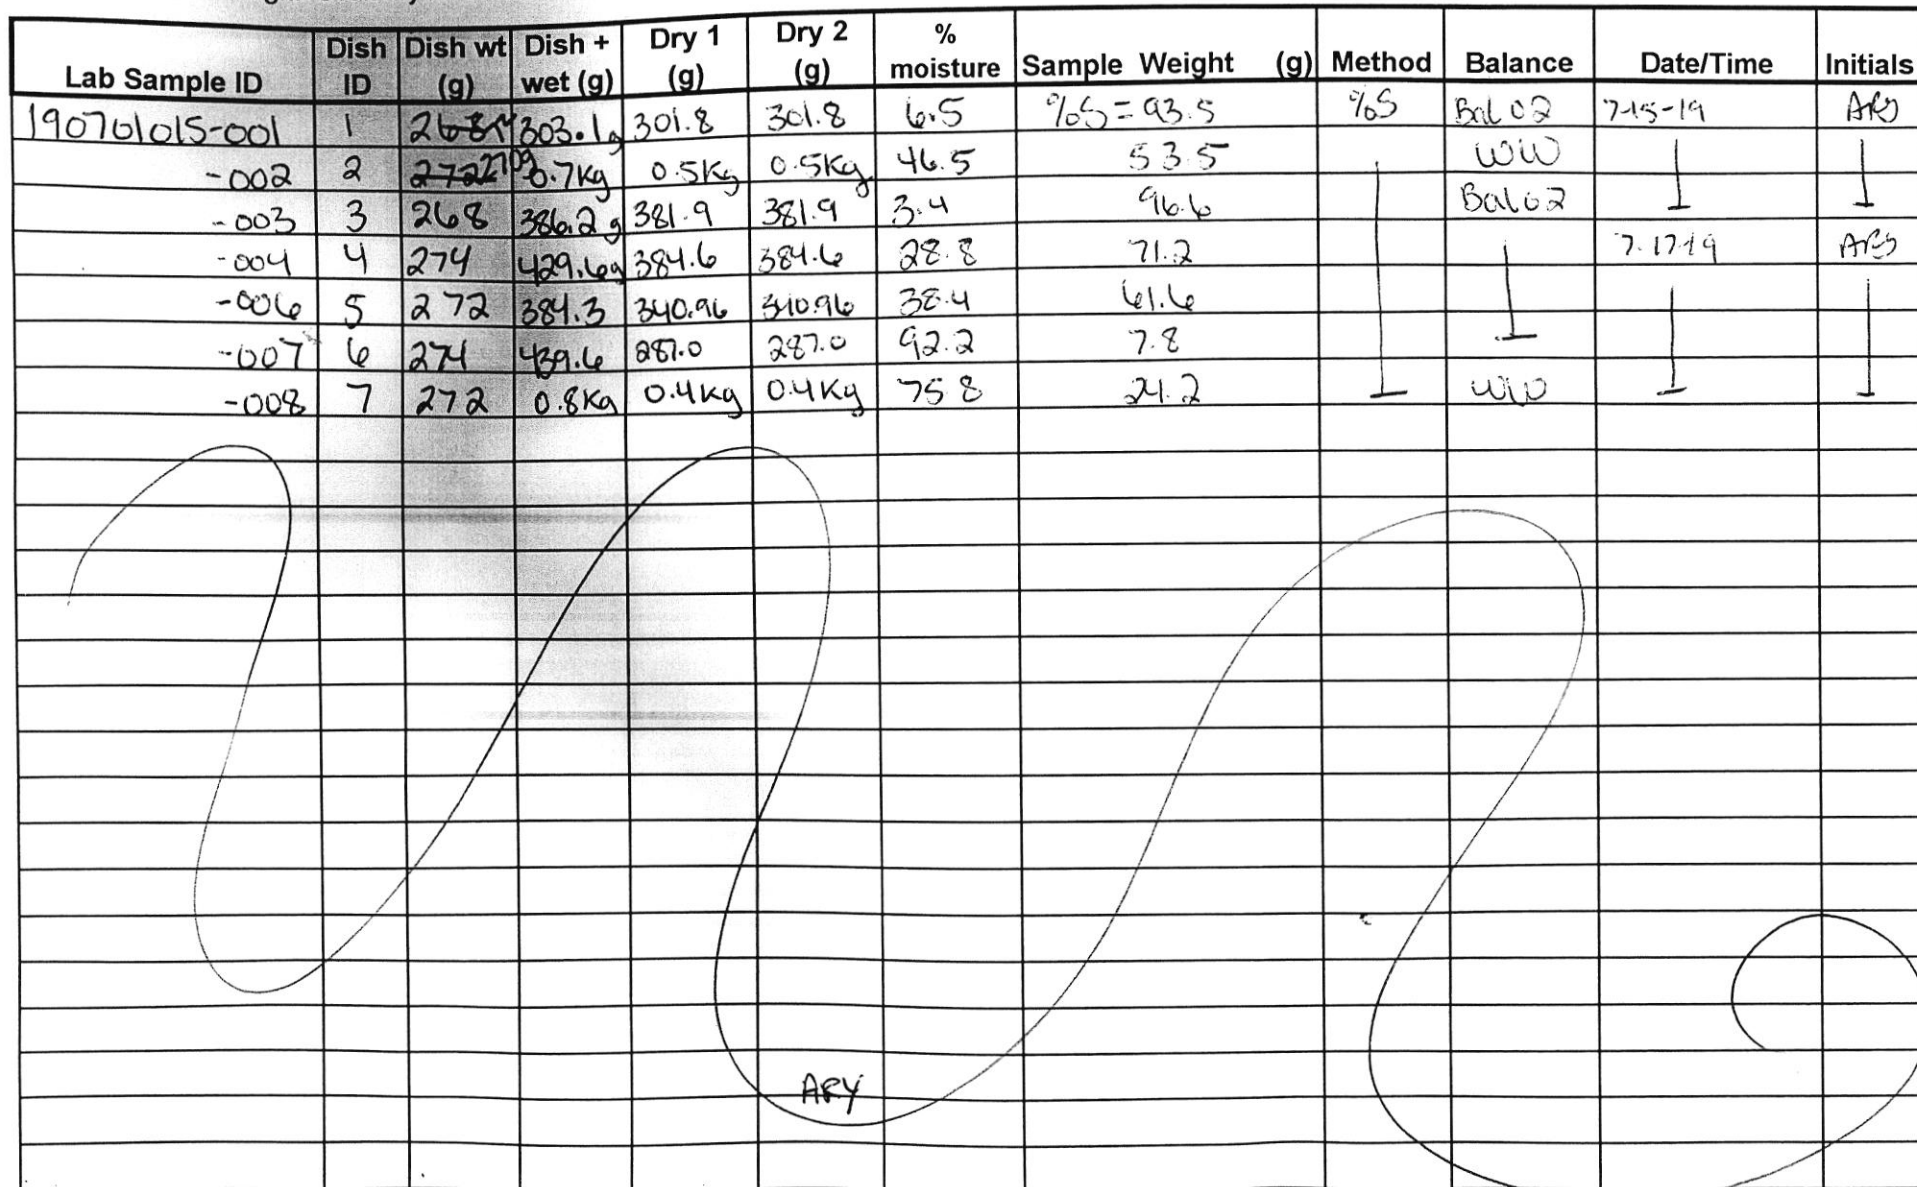 Lab Sample ID | Dish ID | Dish wt (g) | Dish + wet (g) | Dry 1 (g) | Dry 2 (g) | % moisture | Sample Weight (g) | Method | Balance | Date/Time | Initials
190701015-001 | 1 | 268 | 303.1g | 301.8 | 301.8 | 6.5 | %S = 93.5 | %S | Bal 02 | 7-15-19 | ARY
-002 | 2 | 272 270g | 0.7Kg | 0.5Kg | 0.5Kg | 46.5 | 53.5 | WW
-003 | 3 | 268 | 386.2g | 381.9 | 381.9 | 3.4 | 96.6 | Bal 02
-004 | 4 | 274 | 429.6g | 384.6 | 384.6 | 28.8 | 71.2 | 7-17-19 | ARY
-006 | 5 | 272 | 384.3 | 340.96 | 340.96 | 38.4 | 61.6
-007 | 6 | 274 | 439.6 | 287.0 | 287.0 | 92.2 | 7.8
-008 | 7 | 272 | 0.8Kg | 0.4Kg | 0.4Kg | 75.8 | 24.2 | WW
ARY